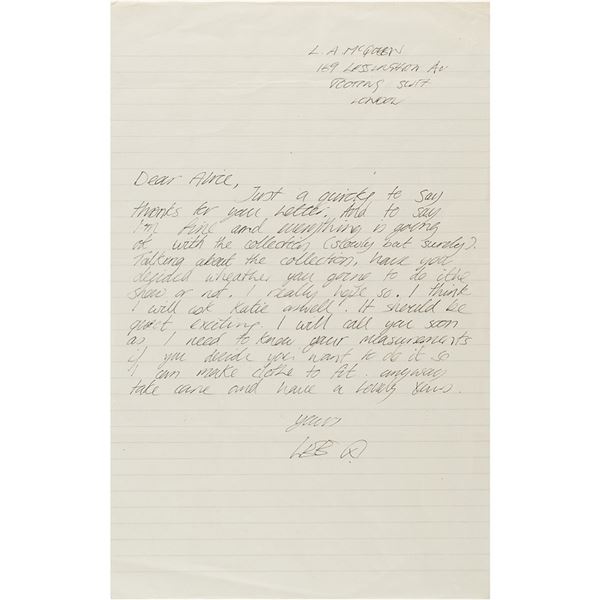 L. A McQueen
169 Lessingham Av
Tooting SW17
London
Dear Alice,
Just a quicky to say
thanks for your letter. And to say
I'm fine and everything is going
ok with the collection (slowly but surely).
Talking about the collection, have you
decided wheather your going to do the
show or not. I really hope so. I think
I will ask Katie aswell. It should be
quiet exciting. I will call you soon
as I need to know your measurements
if you decide you want to do it so
I can make clothe to fit. anyway
take care and have a lovely Xmas.
yours
LEE X